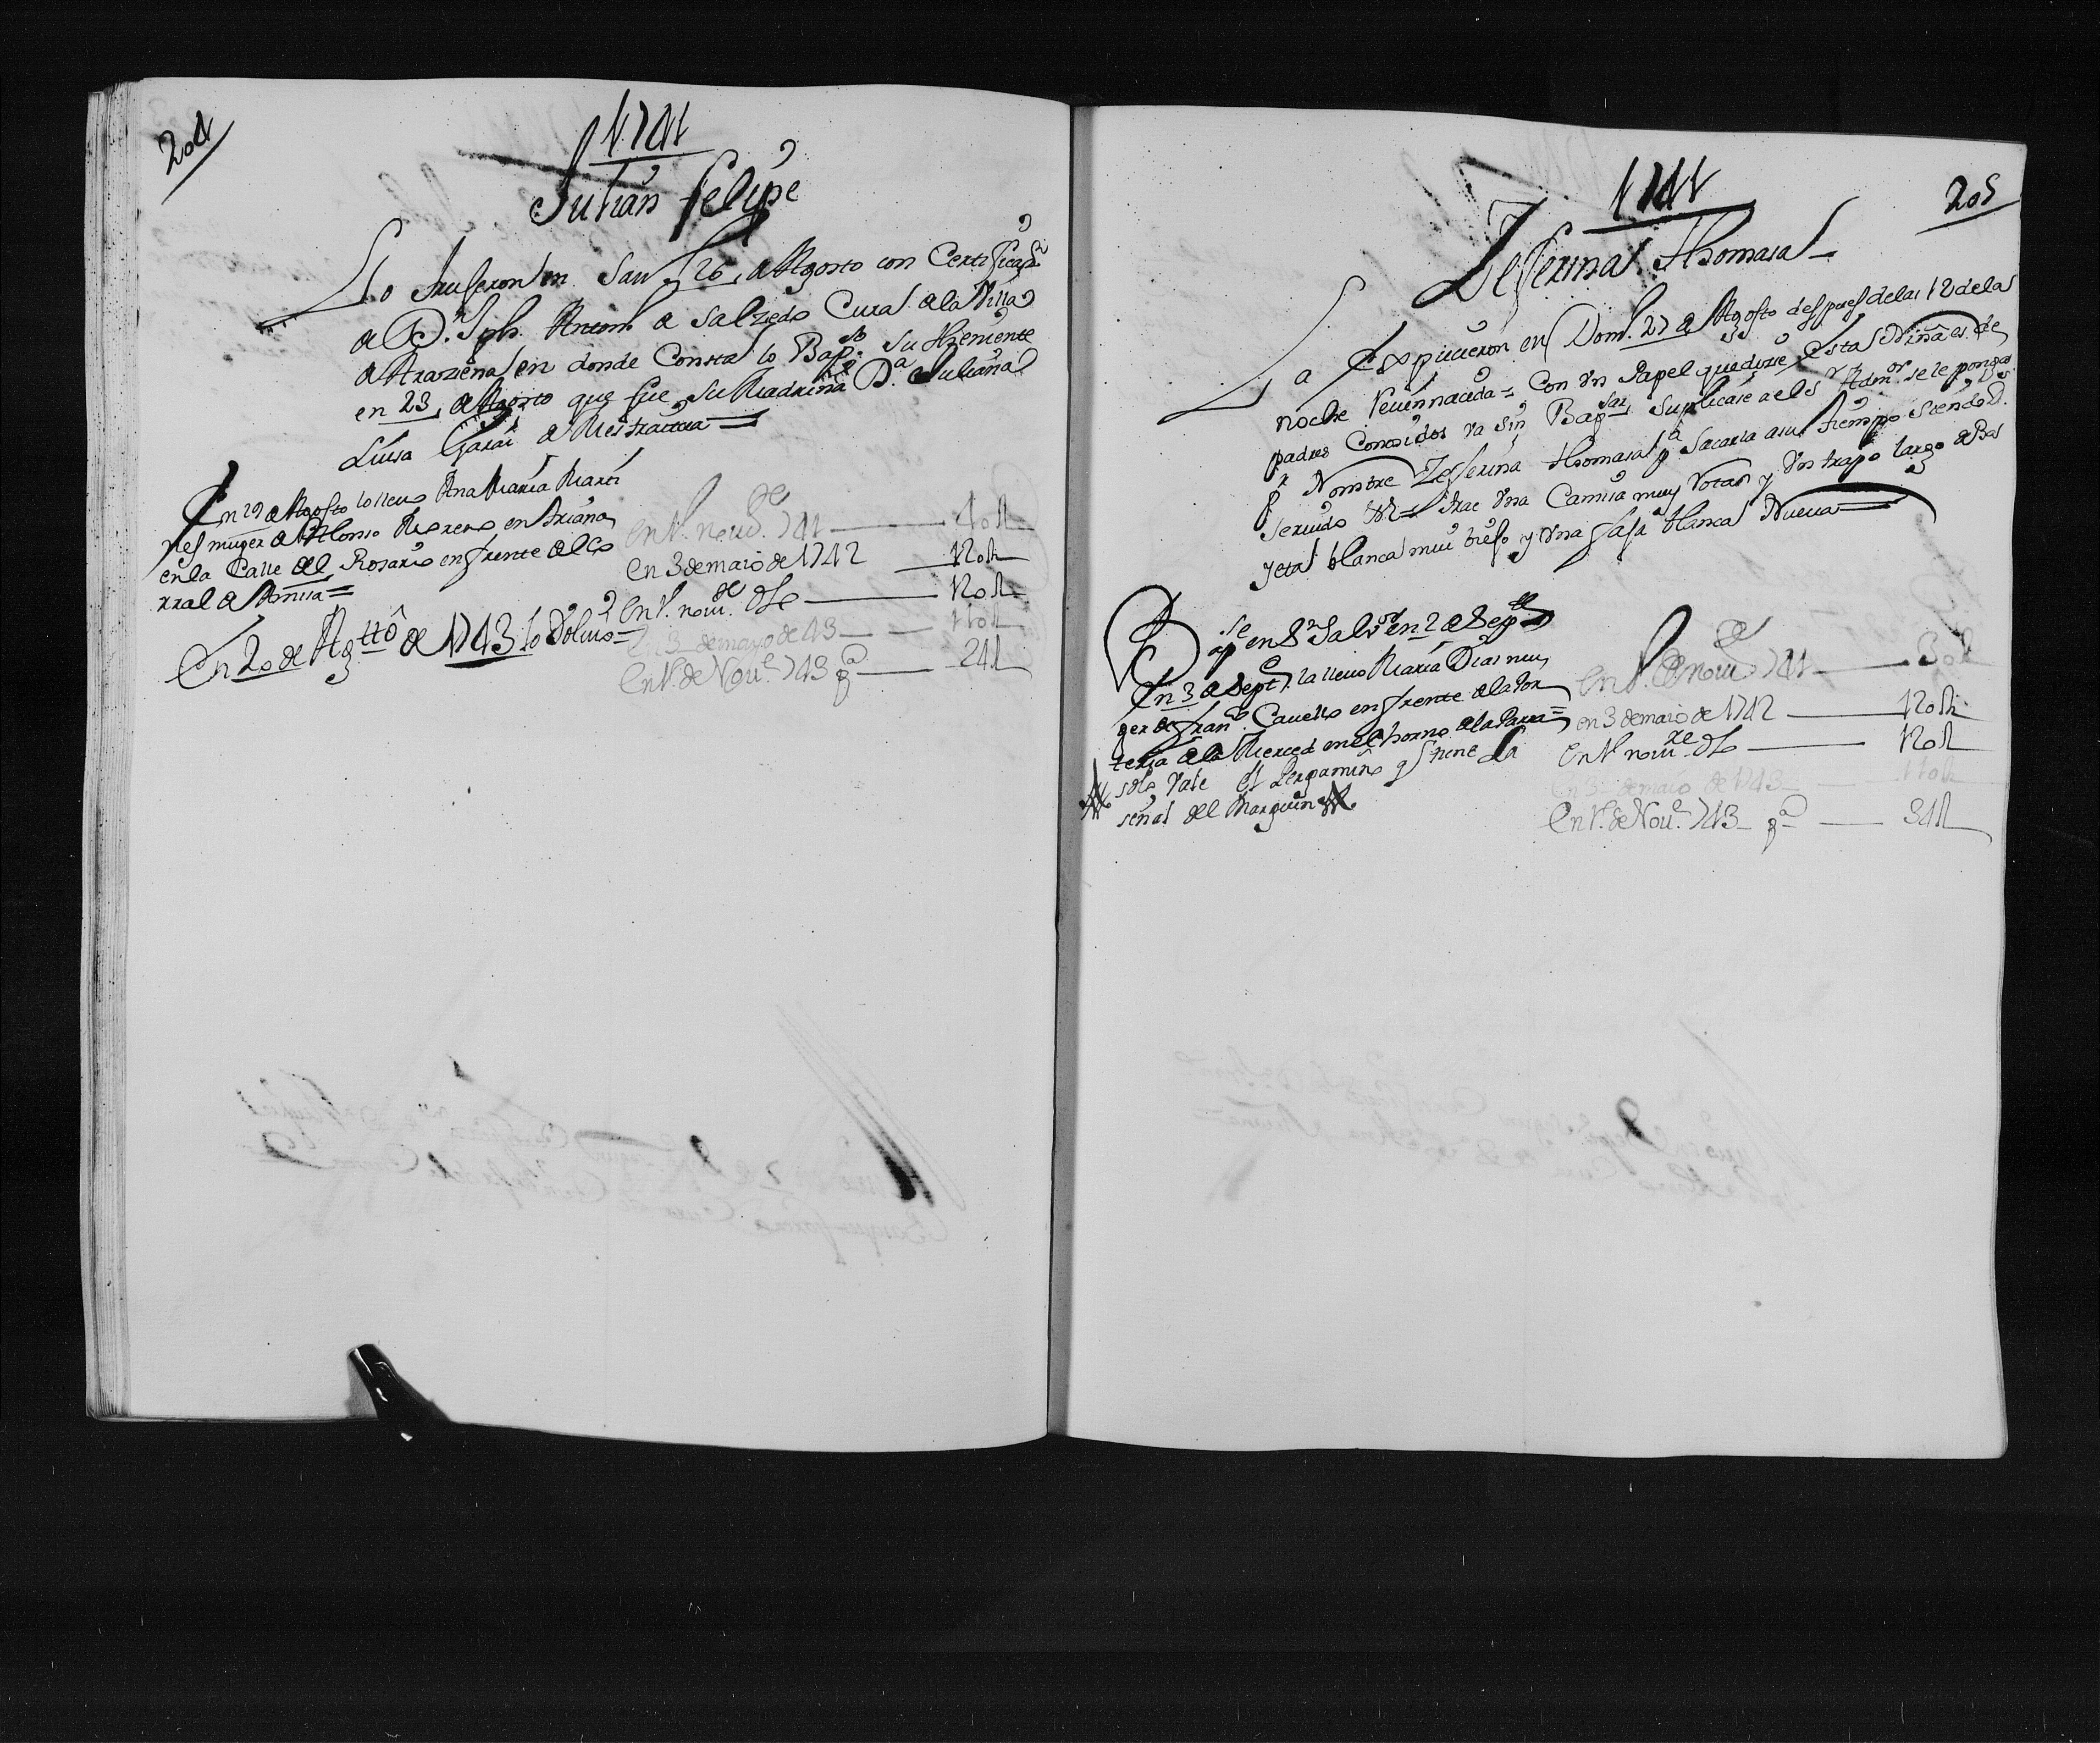 204
1741
Julian Felipe
Lo truxeron en Sav. 26, de Agosto con Certificaz.n
de D.n Jph. Antonio de Salzedo Cura de la Villa
de Arazena en donde Consta lo Bap.zo su Theniente
en 23, de Agosto que fue su Madrina D.a Juliana
Luisa Garai de
En 29 de Agosto lo llevo Ana Maria Marti
nes muger de Alonso Moreno en triana
en la Calle del Rosario enfrente del Co
rral de
En 20 de Ag.tto de 1743 lo Volvio=
en 1.o nov.re 741 — 40 R
en 3 de maio de 1742 — 120 R
en 1.o nov.re dho — 120 R
en 3 de mayo de 43 — 110 R
en 1.o de Nov.e 743 p.a — 24 R
1741
205
Zeferina Thomasa
La Expusieron en Dom.o 27 de Agosto despues de las 12 de la
noche recien nacida = Con un Papel que dize Esta Niña es de
padres Conosidos va sin Bap.sar Suplicase a el S.r Adm.or se le ponga
p.r Nombre Zeferina Thomasa p.a Sacarla a su tiempo siendo D.s
servido = trae Una Camisa muy Rota y Un trapo largo de Ba
yeta blanca mui biejo y Una faja blanca Nueva=
Bap.se en S.n Salv.or en 2 de Sep.re
En 3 de Sept.e la llevo Maria Dias mu
ger de Fran.co Cavello enfrente de la Por
teria de la Merced en el horno de la Parra=
solo Vale el Pergamino q tiene la
señal del Marguen
en 1.o de nov.re 741 — 30 R
en 3 de maio de 1742 — 120 R
en 1.o nov.re dho — 120 R
en 3 de maio de 1743 — 110 R
en 1.o de Nov.e 743 p.a — 34 R